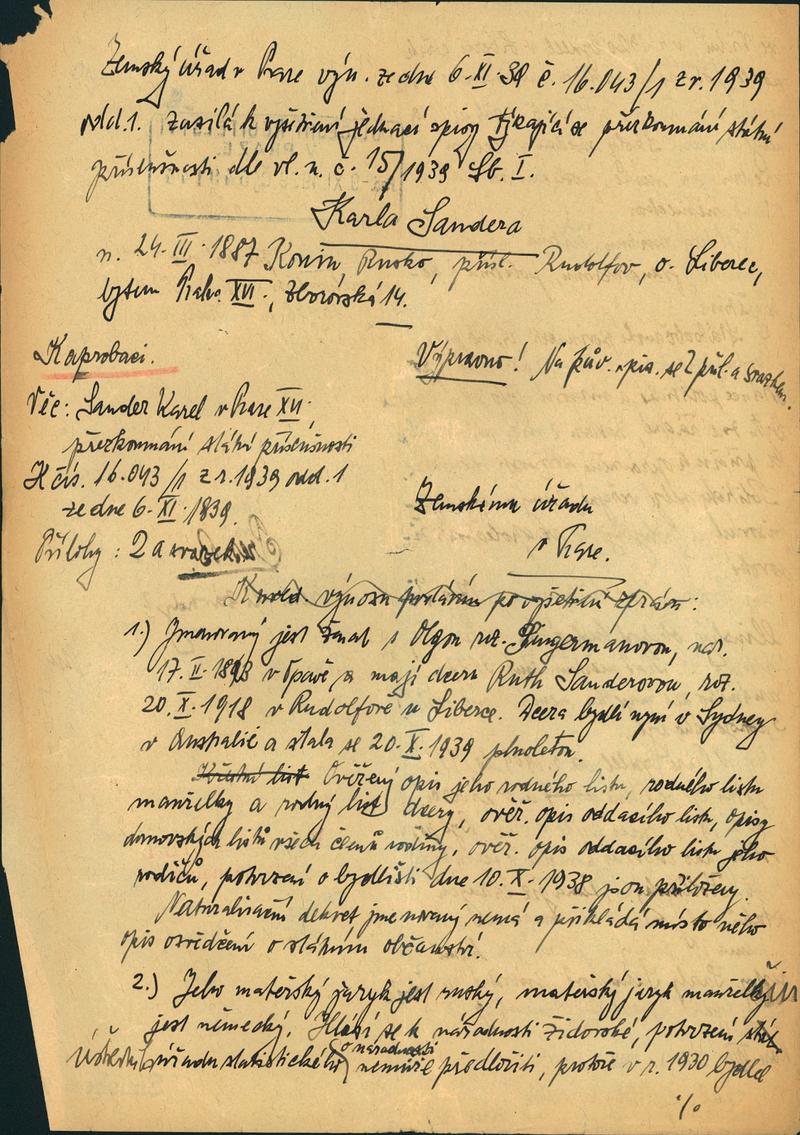 Zemský úřad v Praze výn. ze dne 6.XI.39 č. 16.043/1 z r. 1939
odd.1. zasílá k vyšetření jednací spisy týkající se přezkoumání státní
příslušnosti dle vl. n. č. 15/1939 Sb. I.
Karla Sandera
n. 24.III.1887 Konin, Rusko, přísl. Rudolfov, o. Liberec,
bytem Praha XVI., Zborovská 14.
K aprobaci.
Výpravno! Na pův. spis. se 2 příl. a svazkem.
Věc: Sander Karel v Praze XVI.
přezkoumání státní příslušnosti
K čís. 16.043/1 z r. 1939 odd. 1
ze dne 6.XI.1839.
Přílohy: 2 a svazek
Zemskému úřadu
v Praze.
K výnosu podávám po vyšetření zprávu:
1.) Jmenovaný jest ženat s Olgou roz. Fingermanovou, nar.
17.II.1893 v Opavě, a mají dceru Ruth Sanderovou, roz.
20.X.1918 v Rudolfově u Liberce. Dcera bydlí nyní v Sydney
v Australii a stala se 20.X.1939 plnoletou.
Křestní list Ověřený opis jeho rodného listu, rodného listu
manželky a rodný list dcery, ověř. opis oddacího listu, opisy
domovských listů všech členů rodiny, ověř. opis oddacího listu jeho
rodičů, potvrzení o bydlišti dne 10.X.1938 jsou přiloženy.
Naturalisační dekret jmenovaný nemá a přikládá místo něho
opis osvědčení o státním občanství.
2.) Jeho mateřský jazyk jest ruský, mateřský jazyk manželky
jest německý. Hlásí se k národnosti židovské, potvrzení stát.
úřadu statistického o národnosti nemůže předložiti, protože v r. 1930 bydlel
%